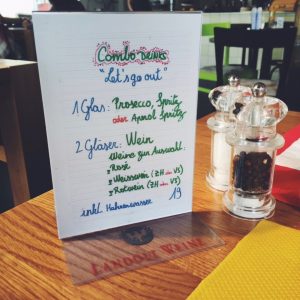 Combo DRINKS
"Let's go out"
1 Glas: Prosecco, Spritz
oder Aperol Spritz
2 Gläser: Wein
Weine zur Auswahl:
* Rosé
* Weisswein (ZH oder VS)
* Rotwein (ZH oder VS)
inkl. Hahnenwasser 19